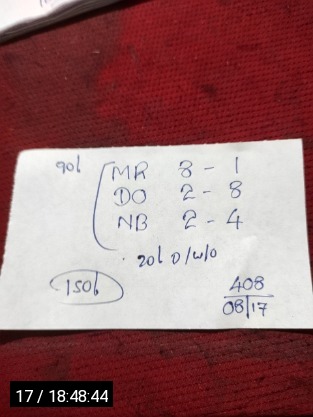 90b MR 3 - 1
DO 2 - 8
NB 2 - 4
20b D/w/o
150b
408
08/17
17 / 18:48:44